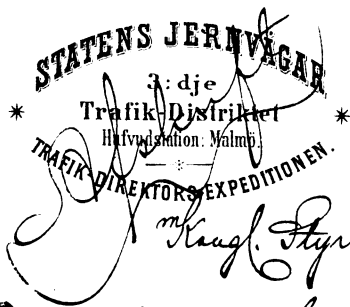 STATENS JERNVÄGAR
3:dje
Trafik-Distriktet
Hufvudstation: Malmö.
TRAFIK-DIREKTÖRS-EXPEDITIONEN.
Kongl. Styr